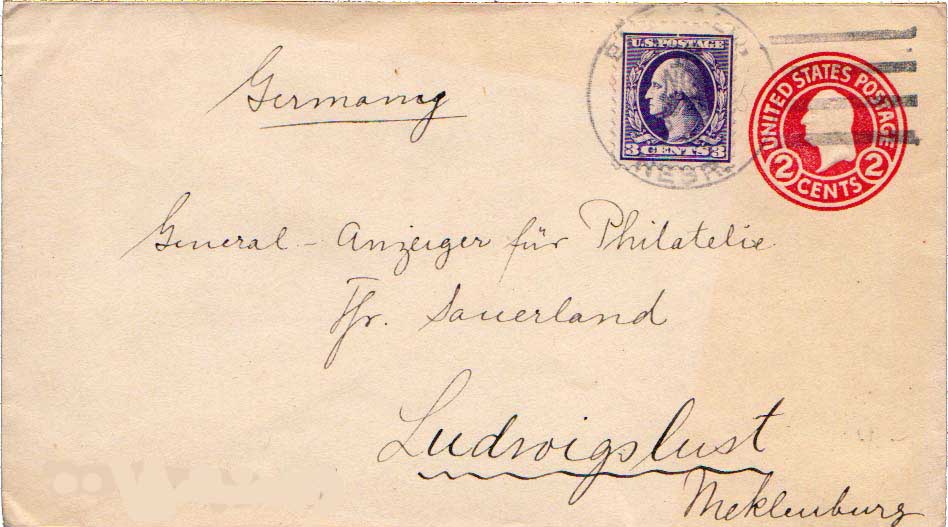 U.S. POSTAGE
3 CENTS 3
NEBR.
UNITED STATES POSTAGE
2 CENTS 2
Germany
General-Anzeiger für Philatelie
Fr. Sauerland
Ludwigslust
Meklenburg